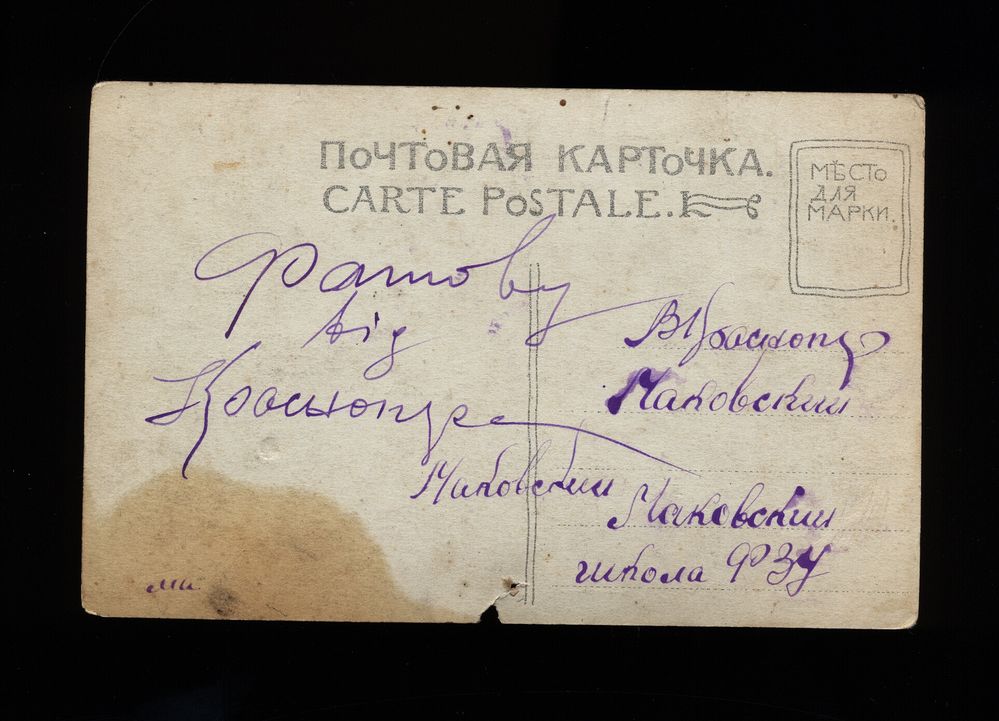 ПОЧТОВАЯ КАРТОЧКА.
CARTE POSTALE.
МѢСТО
ДЛЯ
МАРКИ.
Фатову
від
Маковский
Маковский
Маковский
школа ФЗУ
ми